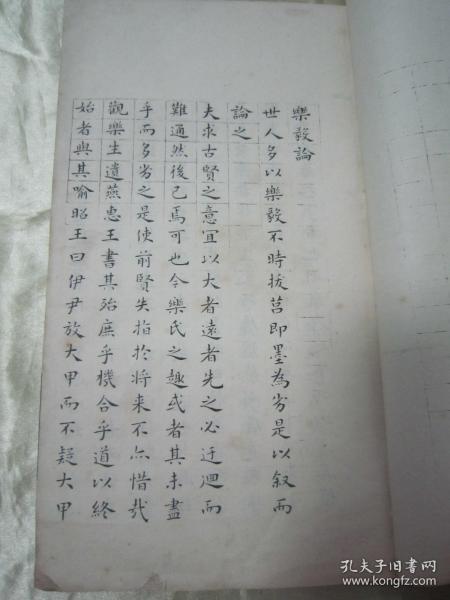 樂毅論
世人多以樂毅不時拔莒即墨為劣是以叙而
論之
夫求古賢之意宜以大者遠者先之必迂迴而
難通然後已焉可也今樂氏之趣或者其未盡
乎而多劣之是使前賢失指於将来不亦惜哉
觀樂生遺燕惠王書其殆庶乎機合乎道以終
始者與其喻昭王曰伊尹放大甲而不疑大甲
孔夫子旧书网
www.kongfz.com